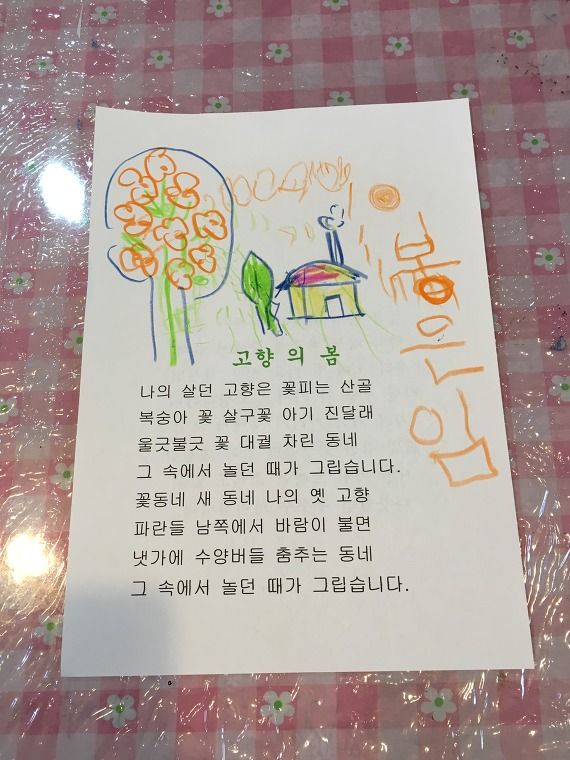 고향의 봄
나의 살던 고향은 꽃피는 산골
복숭아 꽃 살구꽃 아기 진달래
울긋불긋 꽃 대궐 차린 동네
그 속에서 놀던 때가 그립습니다.
꽃동네 새 동네 나의 옛 고향
파란들 남쪽에서 바람이 불면
냇가에 수양버들 춤추는 동네
그 속에서 놀던 때가 그립습니다.
봉은임